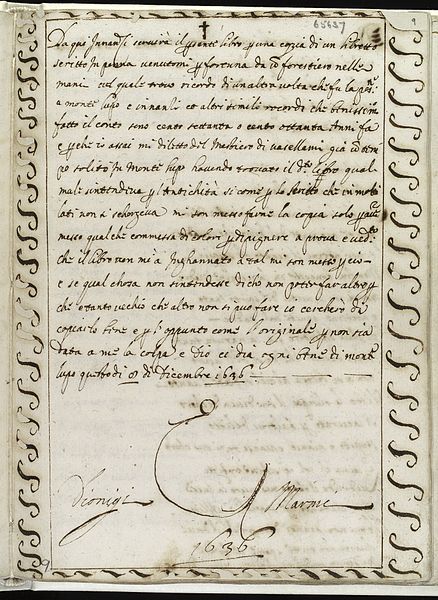 65637
9
Da qui Innanzi servira il presente libro per una copia di un libretto
scritto In penna venutomi per fortuna da un forestiero nelle
mani col quale trovo ricordi di un altra volta che fu la peste
a monte lupo e innanzi et altri simili recordi che benissimo
fatto il conto sono cento settanta o cento ottanta Anni fa
e perche io assai mi diletto del Mestiero di vasellami già
solito In Monte lupo havendo trovato il detto libro qual
male sintendeva per l'Antichità si come per lo scritto che in molti
lati non si schorgeva mi son messo farne la copia solo
messo qualche commessa di colori per dipignere a prova e
che il libro non mi a Inghannato a tal mi son messo
e se qual chosa non sintendesse dicho non poter far altro
che e tanto vecchio che altro non si puo fare io cercherò di
copiarlo bene e per l'appunto come l'originale per non sia
data a me la colpa e Dio ci dia ogni bene di monte
lupo questo di 8 di Dicembre 1636
Dionigi Marmi
1636
9